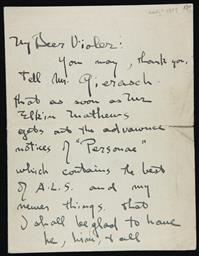 My Dear Violet:
You may, thank you,
tell Mr. Gierasch
that as soon as
Elkin Mathews
gets out the advance
notices of "Personae"
which contains the best
of A.L.S. and my
newer things. that
I shall be glad to have
he, him, & all